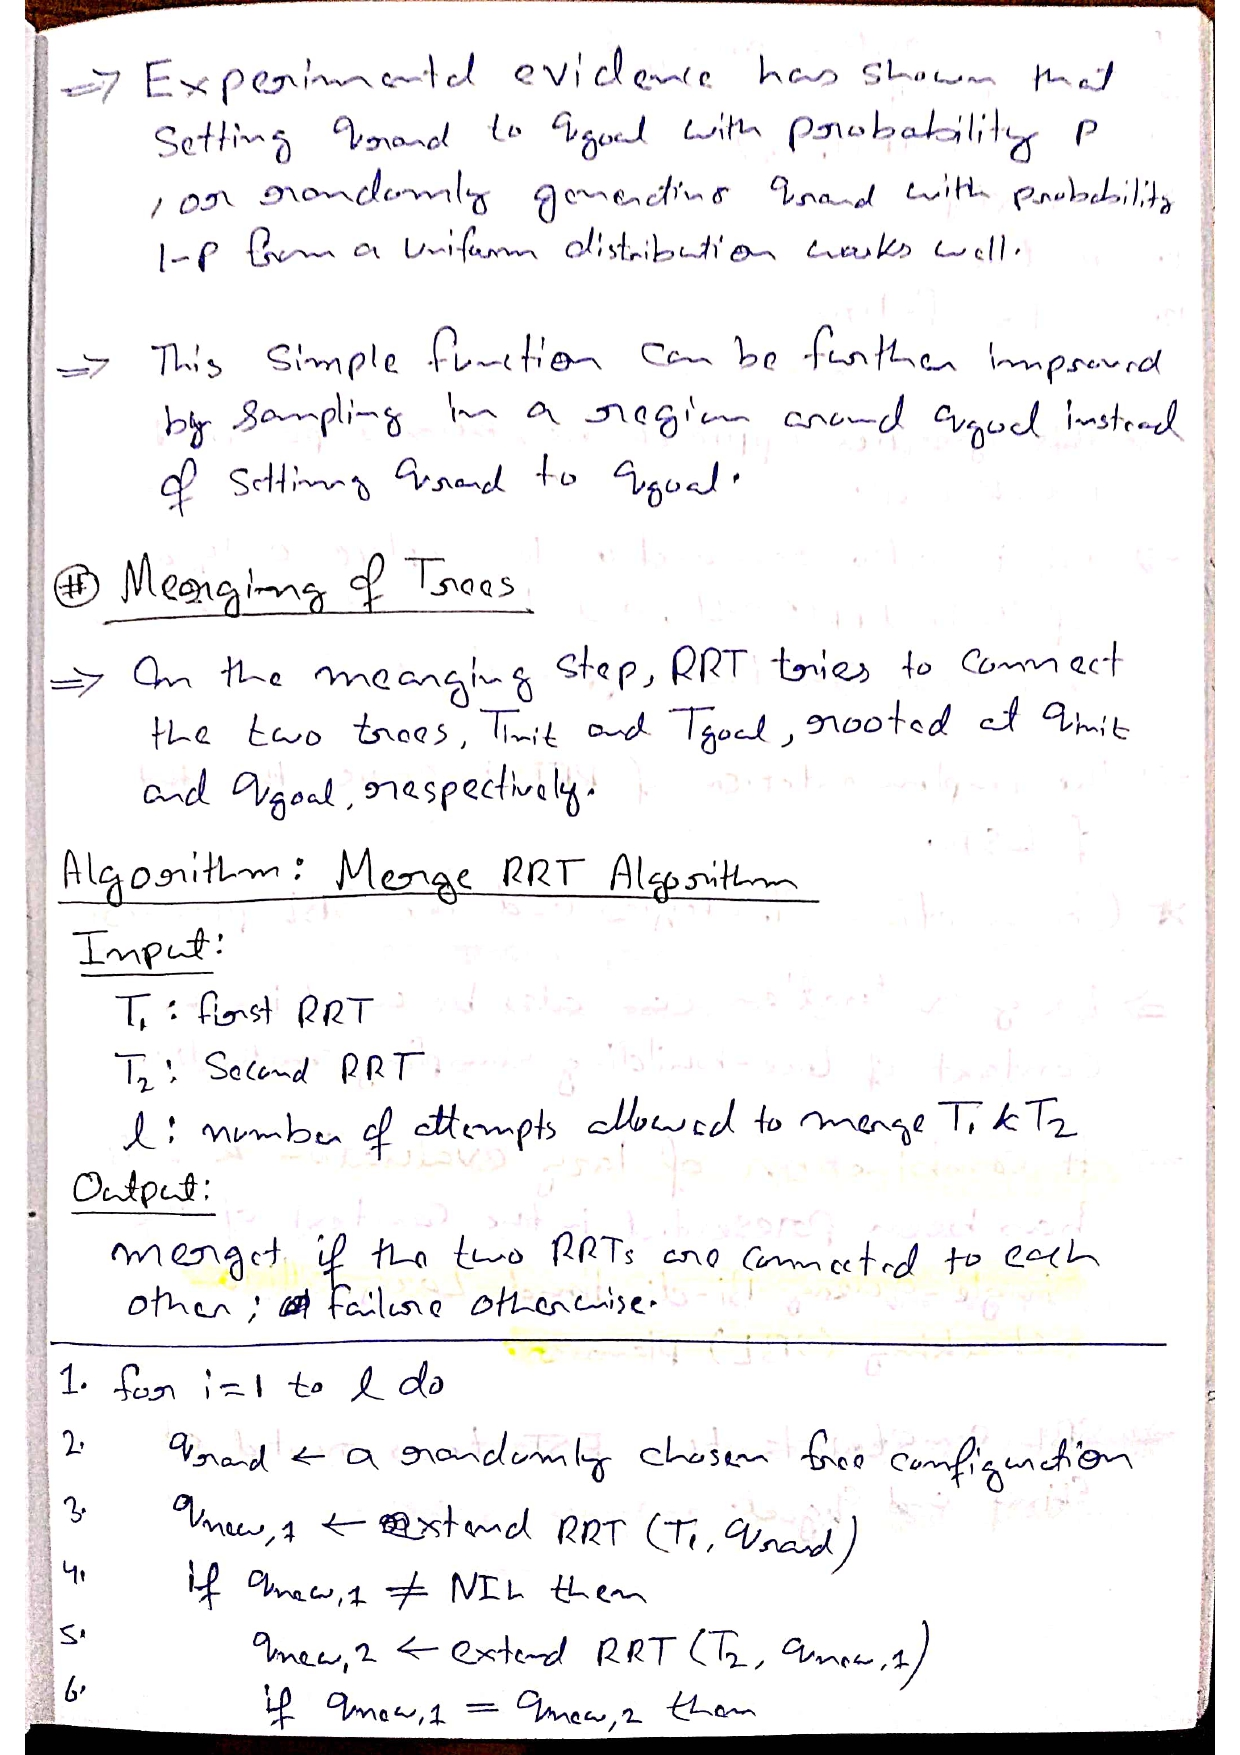 => Experimental evidence has shown that
Setting qrand to qgoal with probability p
, or randomly generating qrand with probability
1-p from a uniform distribution works well.
=> This simple function can be further improved
by sampling in a region around qgoal instead
of setting qrand to qgoal.
# Merging of Trees
=> In the merging step, RRT tries to connect
the two trees, Tinit and Tgoal, rooted at qinit
and qgoal, respectively.
Algorithm: Merge RRT Algorithm
Input:
T1 : first RRT
T2 : Second RRT
l : number of attempts allowed to merge T1 & T2
Output:
merget if the two RRTs are connected to each
other ; failure otherwise.
1. for i=1 to l do
2. qrand ← a randomly chosen free configuration
3. qnew,1 ← extend RRT (T1, qrand)
4. if qnew,1 ≠ NIL then
5. qnew,2 ← extend RRT (T2, qnew,1)
6. if qnew,1 = qnew,2 then